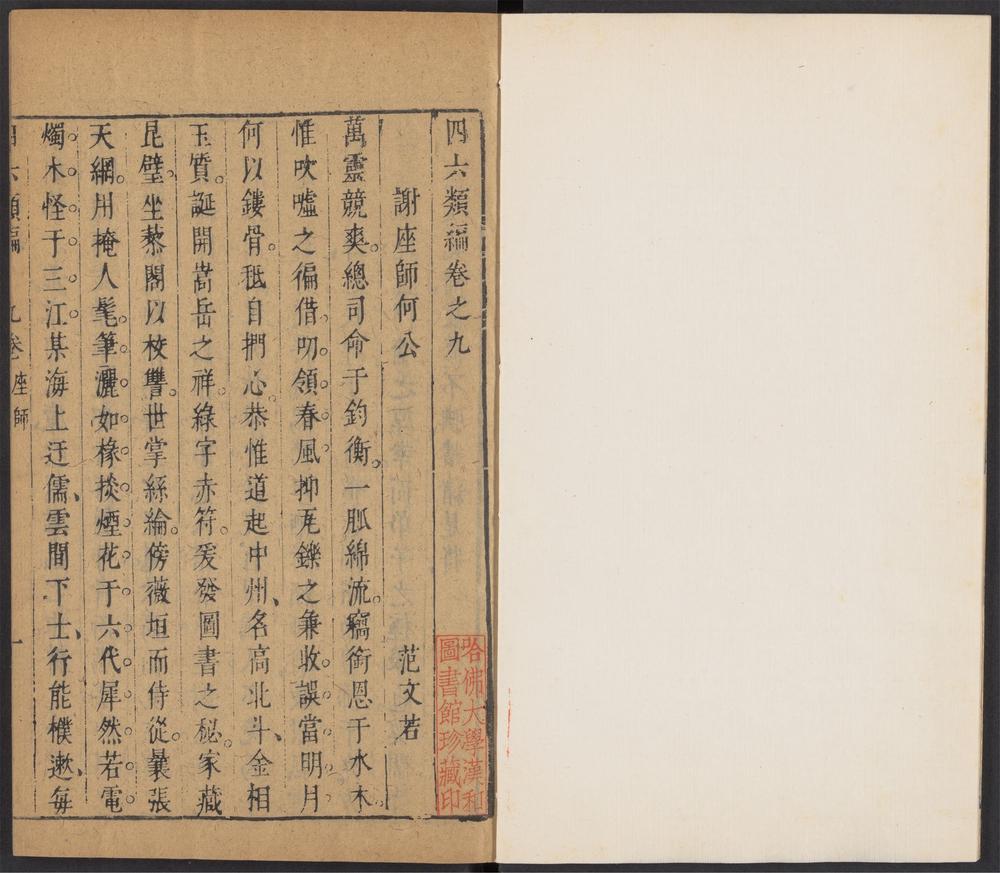 四六類編卷之九
謝座師何公 范文若
萬靈競爽。總司命于鈞衡。一脈綿流。竊銜恩于水木。
惟吹噓之徧借。叨領春風。抑瓦鑠之兼收。誤當明月。
何以鏤骨。秖自捫心。恭惟道起中州、名高北斗、金相
玉質。誕開嵩岳之祥。綠字赤符。爰發圖書之秘。家藏
昆璧。坐藜閣以校讐。世掌絲綸。傍薇垣而侍從。曩張
天網。用掩人髦。筆灑如椽。掞煙花于六代。犀然若電。
燭木怪于三江。某海上迂儒、雲間下士、行能樸遬、每
四六類編 九卷 座師 一
哈佛大學漢和
圖書館珍藏印